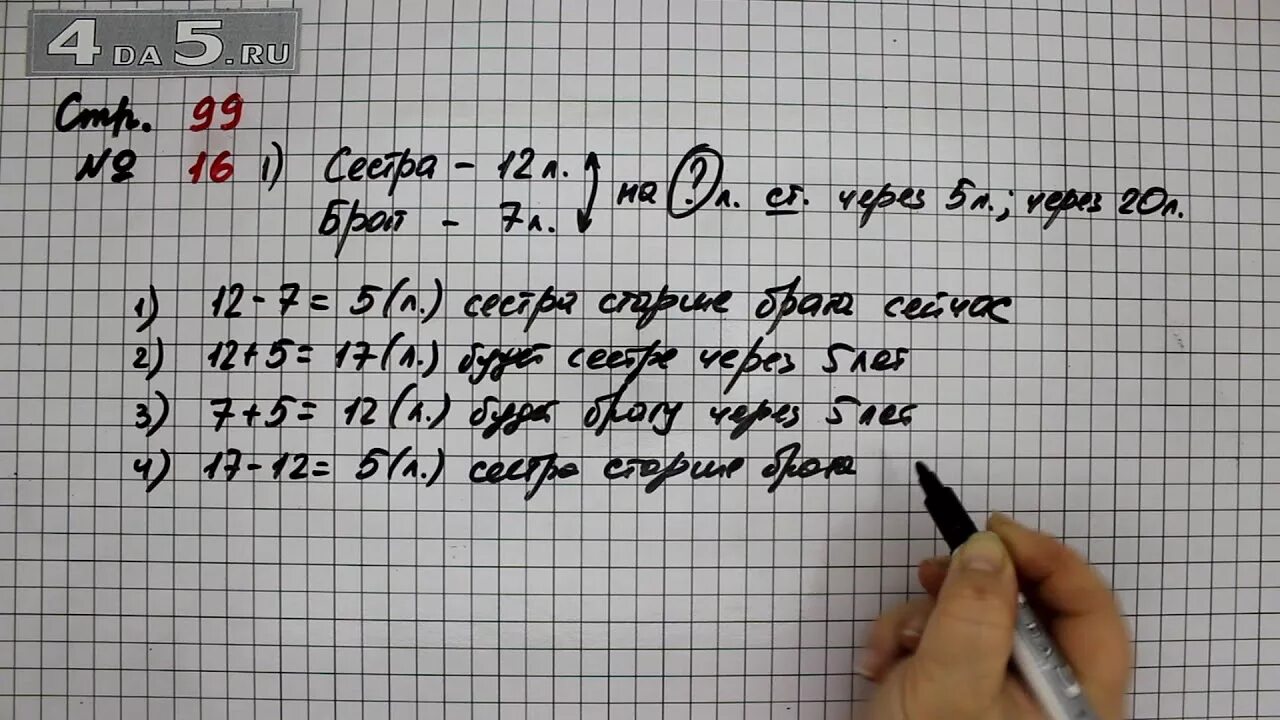 4DA5.RU
Стр. 99
№ 16 1) Сестра - 12 л. на ? л. ст. через 5 л.; через 20 л.
Брат - 7 л.
1) 12 - 7 = 5 (л.) сестра старше брата сейчас
2) 12 + 5 = 17 (л.) будет сестре через 5 лет
3) 7 + 5 = 12 (л.) будет брату через 5 лет
4) 17 - 12 = 5 (л.) сестра старше брата